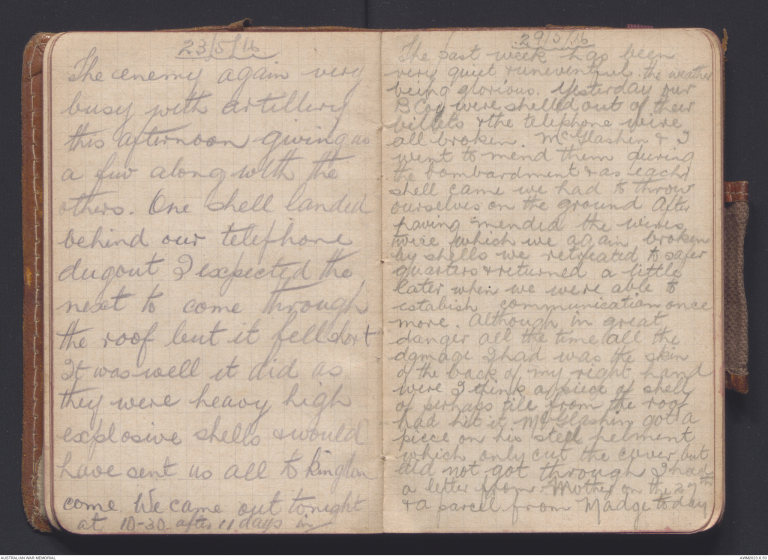 23/5/16
The enemy again very
busy with artillery
this afternoon giving us
a few along with the
others. One shell landed
behind our telephone
dugout I expected the
next to come through
the roof but it fell short
It was well it did as
they were heavy high
explosive shells & would
have sent us all to kingdom
come We came out tonight
at 10-30 after 11 days in
29/5/16
The past week has been
very quiet & uneventful. the weather
being glorious. Yesterday our
B Coy were shelled out of their
billets & the telephone wire
all broken. McGlashen & I
went to mend them during
the bombardment & as each
shell came we had to throw
ourselves on the ground After
having mended the wires
twice which we again broken
by shells we retreated to safer
quarters & returned a little
later when we were able to
estabish communication once
more. Although in great
danger all the time all the
damage I had was the skin
of the back of my right hand
were I think a piece of shell
or perhaps tile from the roof
had hit it. McGlashen got a
piece on his steel helment
which only cut the cover but
did not got through I had
a letter from Mother on the 27th
& a parcel from Madge to day
AUSTRALIAN WAR MEMORIAL